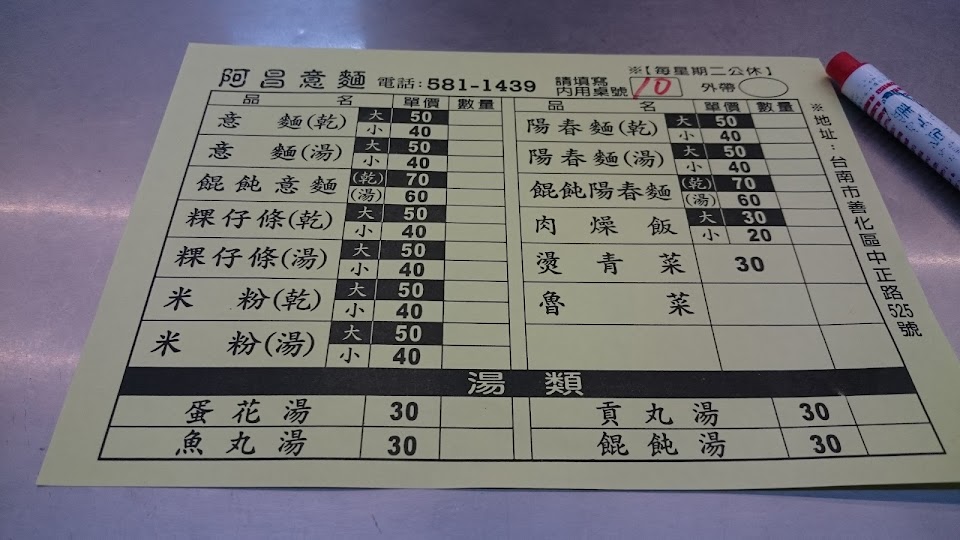 ※【每星期二公休】
阿昌意麵 電話:581-1439 請填寫內用桌號 10 外帶
品名 單價 數量
意麵(乾) 大 50
小 40
意麵(湯) 大 50
小 40
餛飩意麵 (乾) 70
(湯) 60
粿仔條(乾) 大 50
小 40
粿仔條(湯) 大 50
小 40
米粉(乾) 大 50
小 40
米粉(湯) 大 50
小 40
品名 單價 數量
陽春麵(乾) 大 50
小 40
陽春麵(湯) 大 50
小 40
餛飩陽春麵 (乾) 70
(湯) 60
肉燥飯 大 30
小 20
燙青菜 30
魯菜
湯類
蛋花湯 30 貢丸湯 30
魚丸湯 30 餛飩湯 30
※地址:台南市善化區中正路525號